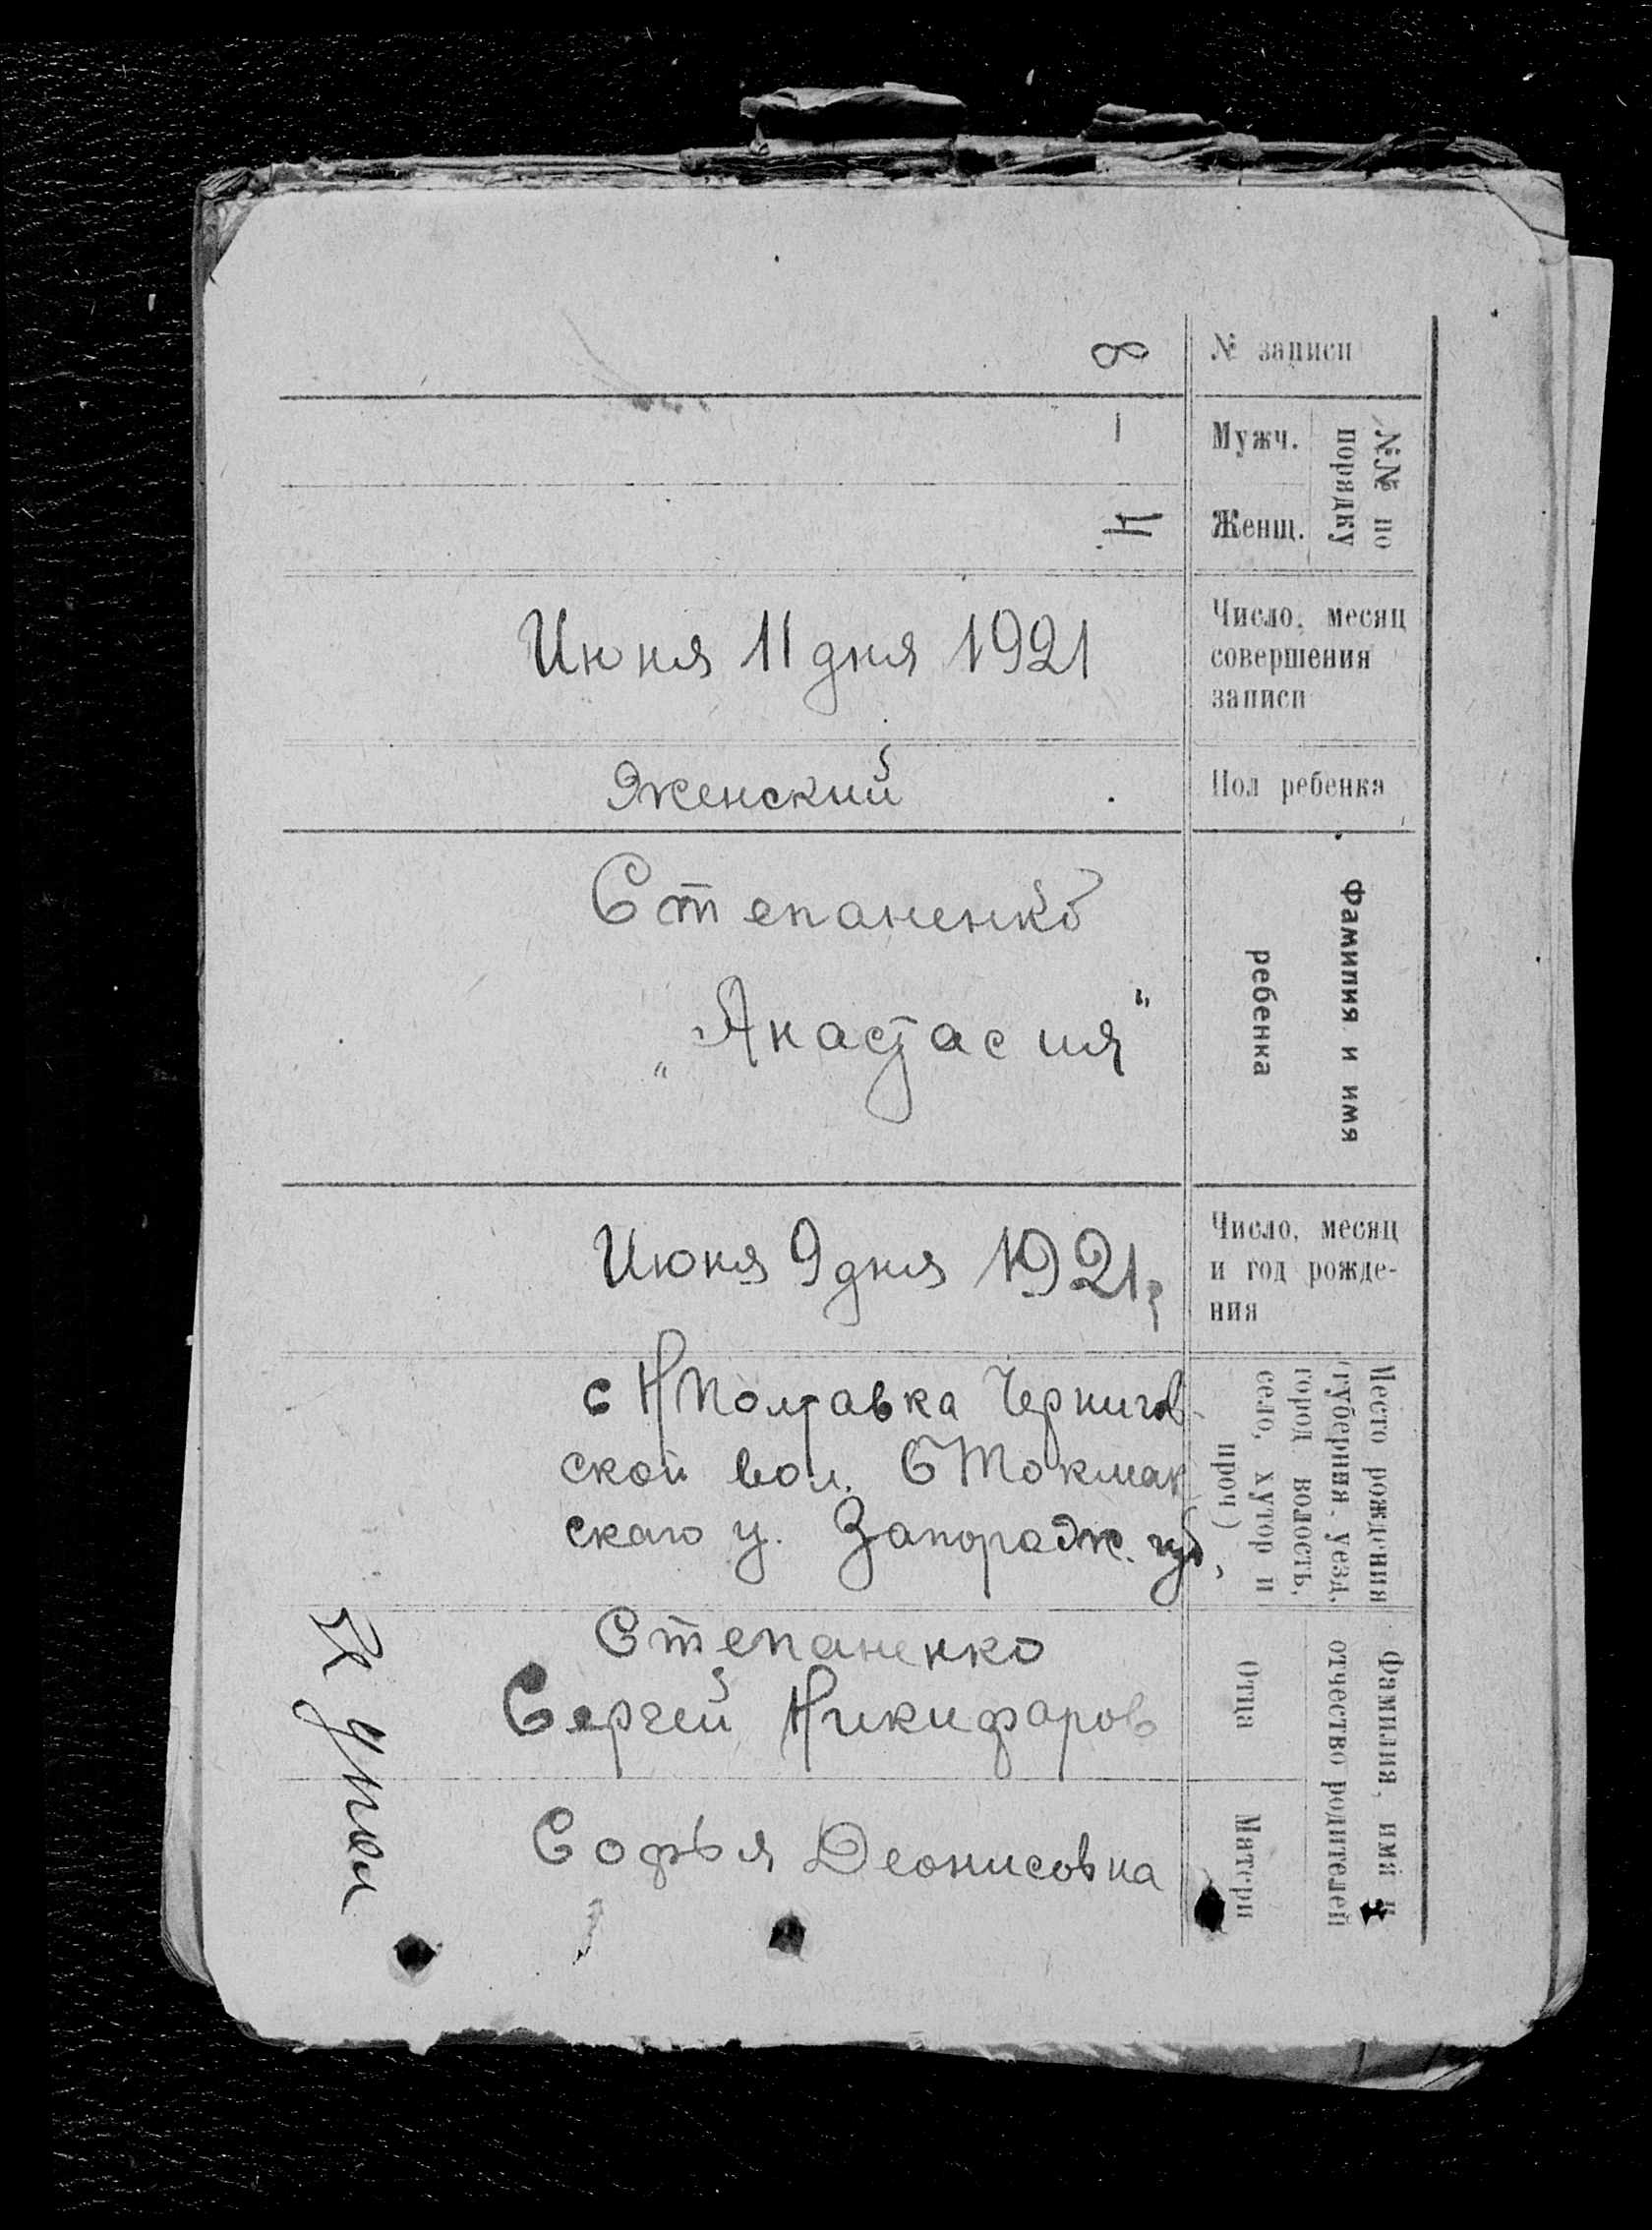 № записи
8
№№ по порядку
Мужч.
–
Женщ.
4
Число, месяц
совершения
записи
Июня 11 дня 1921
Пол ребенка
Женский
Фамилия и имя
ребенка
Степаненко
„Анастасия"
Число, месяц
и год рожде-
ния
Июня 9 дня 1921 г
Место рождения
(губерния, уезд,
город волость,
село, хутор и
проч)
с Н Полтавка Чернигов-
ской вол. Б Токмак
скаго у. Запорож. губ.
Фамилия, имя и
отчество родителей
Отца
Степаненко
Сергей Никифаров
Матери
Софья Деонисовна